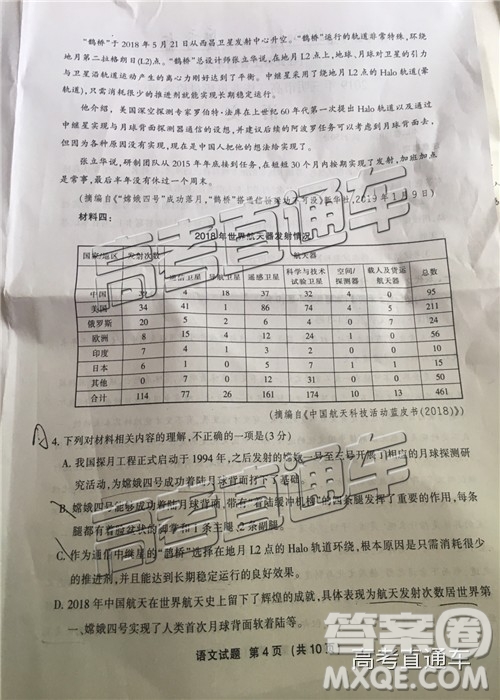 “鹊桥”于2018年5月21日从西昌卫星发射中心升空。“鹊桥”运行的轨道非常特殊，环绕
地月第二拉格朗日(L2)点。“鹊桥”总设计师张立华说，在地月L2点上，地球、月球对卫星的引力
与卫星沿轨道运动产生的离心力刚好达到了平衡。中继星采用了绕地月L2点的Halo轨道(晕
轨道)，只需消耗很少的推进剂就能实现长期稳定运行。
他介绍，美国深空探测专家罗伯特·法库在上世纪60年代第一次提出Halo轨道以及通过
中继星实现与月球背面探测器通信的设想，并建议后续的阿波罗任务可以考虑到月球背面去，
但因为各种原因没有实现，现在是中国人把他的想法给实现了。
张立华说，研制团队从2015年年底接到任务，在短短30个月内按期实现了发射，加班加点
是常事，最后半年没有休过一个周末。
(摘编自《“嫦娥四号”成功落月，“鹊桥”搭建信 新华社，2019年1月9日)
材料四：
2018年世界航天器发射情况
国家/地区 发射次数 航天器
通信卫星 导航卫星 遥感卫星 科学与技术试验卫星 空间/探测器 载人及货运航天器 总数
中国 4 18 37 32 4 0 95
美国 34 41 1 86 74 4 5 211
俄罗斯 20 5 2 6 4 0 7 24
欧洲 8 15 4 12 24 1 0 56
印度 7 4 1 3 2 0 10
日本 6 1 0 5 1 15
其他 0 7 0 12 31 0 0 50
合计 114 77 26 161 174 10 13 461
(摘编自《中国航天科技活动蓝皮书(2018)》)
4. 下列对材料相关内容的理解，不正确的一项是(3分)
A. 我国探月工程正式启动于1994年，之后发射的嫦娥一号至五号开展了相应的月球探测研
究活动，为嫦娥四号成功着陆月球背面打下了基础。
B. 嫦娥四号能够成功着陆月球背面，带有“着陆缓冲机构”的四条腿发挥了重要的作用，每条
腿都有着脸盆状的脚掌和1条主腿、2条副腿。
C. 作为通信中继星的“鹊桥”选择在地月L2点的Halo轨道环绕，根本原因是只需消耗很少
的推进剂，并且能达到长期稳定运行的良好效果。
D. 2018年中国航天在世界航天史上留下了辉煌的成就，具体表现为航天发射次数居世界第
一、嫦娥四号实现了人类首次月球背面软着陆等。
语文试题 第4页(共10页)
高考直通车
高考直通车
答案圈
高考直通车
MXQE.COM